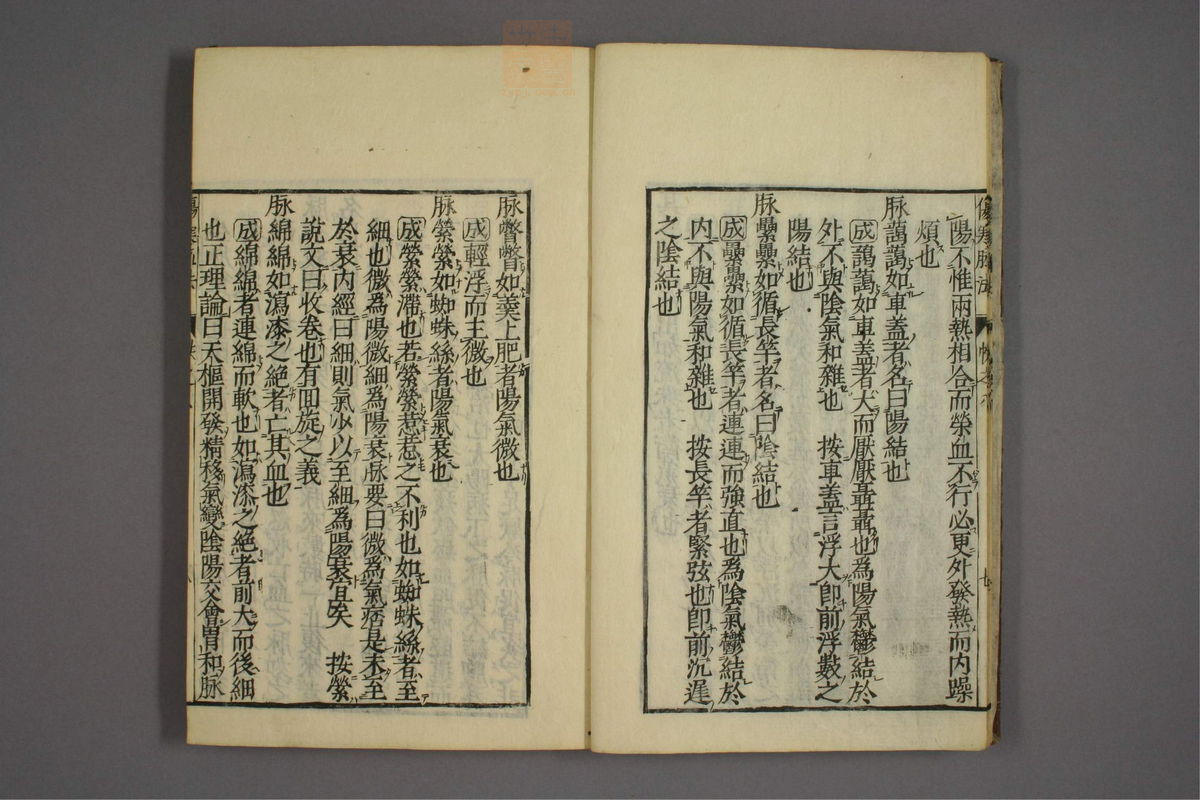 陽不惟兩熱相合而榮血不行必更外發熱而内躁
煩也
脉藹藹如車蓋者名曰陽結也
成藹藹如車蓋者大而厭厭聶聶也爲陽氣鬱結於
外不與陰氣和雜也 按車蓋言浮大即前浮數之
陽結也
脉纍纍如循長竿者名曰陰結也
成纍纍如循長竿者連連而強直也爲陰氣鬱結於
内不與陽氣和雜也 按長竿者緊弦也即前沉遲
之陰結也
脉瞥瞥如羹上肥者陽氣微也
成輕浮而主微也
脉縈縈如蜘蛛絲者陽氣衰也
成縈縈滯也若縈縈惹惹之不利也如蜘蛛絲者至
細也微爲陽微細爲陽衰脉要曰微爲氣痞是未至
於衰内經曰細則氣少以至細爲陽衰宜矣 按縈
說文曰收卷也有回旋之義
脉綿綿如瀉漆之絶者亡其血也
成綿綿者連綿而軟也如瀉漆之絶者前大而後細
也正理論曰天樞開發精移氣變陰陽交會胃和脉